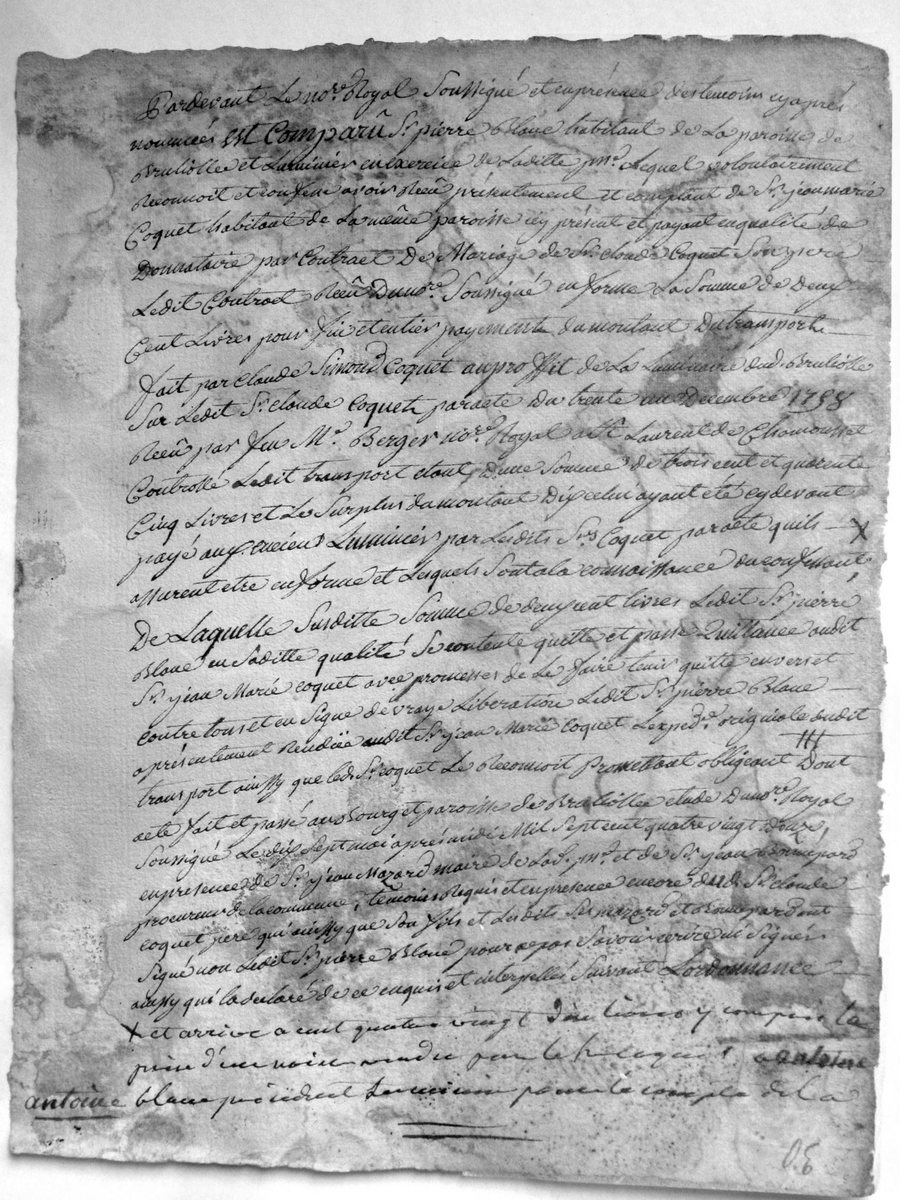 Pardevant Le no.re Royal Soussigné et en présence des temoins cy après
nommés Est Comparû S.r pierre Blanc habitant de La paroisse de
Brulliolle et Luminier en exercice de Laditte p.sse Lequel volontairement
Reconnoit et confesse avoir Reçû présentement et comptant de S.r jean marie
Coquet habitant de La même paroisse icy présent et payant en qualité de
Donnataire par Contract De Mariage de S.r claude Coquet Son pere
Ledit Contract Reçû Du no.re Soussigné en forme La Somme de Deux
Cent Livres pour fin et entier payement du montant Du transport
fait par claude Simond Coquet au proffit de La Luminaire dud. Brulliolle
Sur Ledit S.r claude Coquet par acte Du trente un Decembre
Reçû par feu M.e Berger no.re Royal a St Laurent de Chamousset
Controllé Ledit transport étant D'une Somme de trois cent et quarente
Cinq Livres et Le Surplus du montant D'ycelui ayant été cy devant
payé aux anciens Luminier par Lesdits S.rs Coquet par acte quils X
assurent etre en forme et Lesquels Sont a la connoissance du confessant,
De Laquelle Susditte Somme de deux cent livres Ledit S.r pierre
Blanc en Saditte qualité Se contente quitte et passe Quittance audit
S.r jean Marie coquet avec promesses de Le faire tenir quitte envers et
contre tous et en Signe de vraye Libération Ledit S.r pierre Blanc
a présentement Rendüe audit S.r jean Marie Coquet L'exped.on originale dudit
transport ainsy que led. S.r coquet Le Reconnoit Promettant obligeant Dont
acte fait et passé au Bourg et paroisse de Brulliolle etude Du no.re Royal
Soussigné Le dix Sept mai après midi Mil Sept cent quatre vingt Douze,
en présence de S.r jean Mazard maire de lad. p.sse et de S.r jean
procureur de la commune, témoins Requis et en présence encore dud. S.r claude
coquet pere qui ainsy que Son fils et Lesdits S.rs mazard et ont
Signé non Ledit S.r pierre Blanc pour ne pas Savoir écrire ni Signer
ainsy qu'il a déclaré de ce enquis et interpellé Suivant L'ordonnance
X et arrive a cent quatre vingt livres y compris la
d'une vendu par a antoine
antoine blanc précédent Luminier pour le compte de la